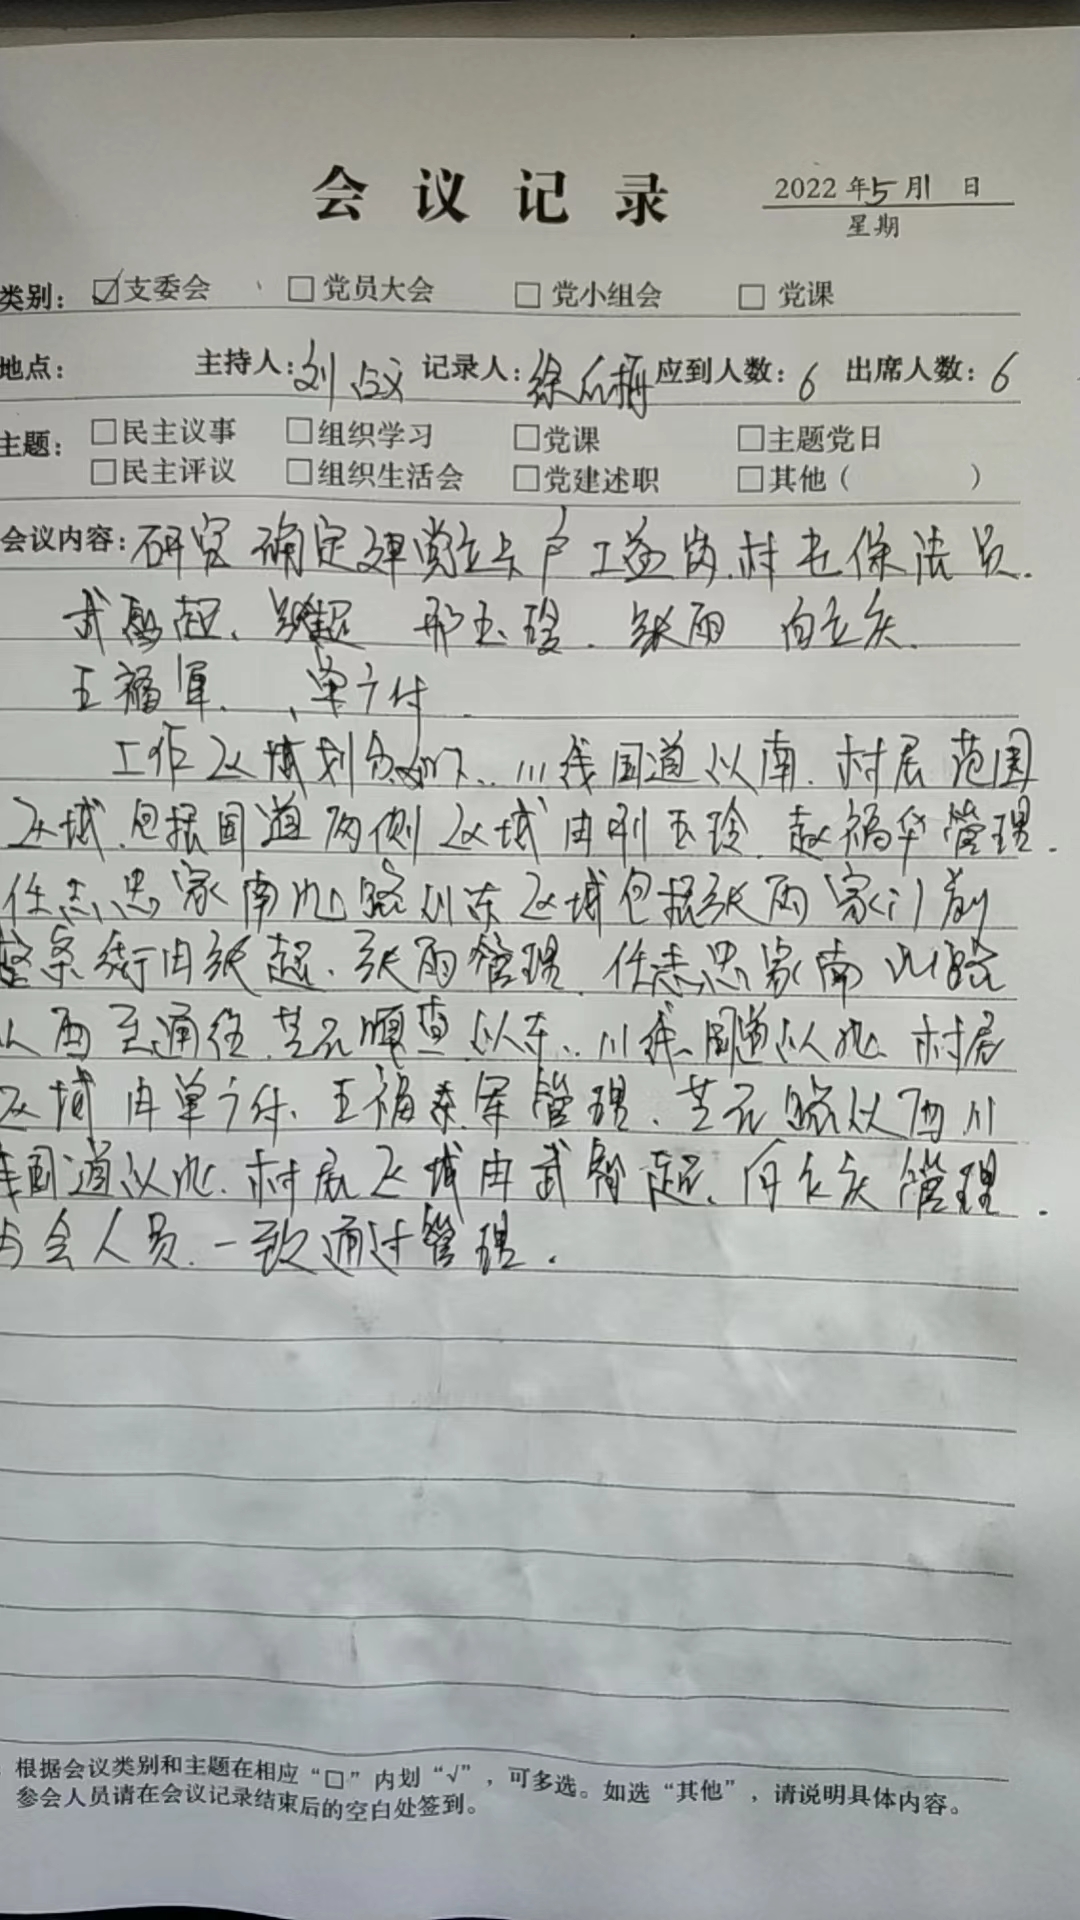 会议记录
2022年5月1日
星期
类别: ☑支委会 □党员大会 □党小组会 □党课
地点: 主持人:刘 记录人:徐 应到人数:6 出席人数:6
主题: □民主议事 □组织学习 □党课 □主题党日
□民主评议 □组织生活会 □党建述职 □其他( )
会议内容:研究确定建档立卡户工益岗.村屯保洁员.
武 超、 玉 . 张雨 向立庆.
王福军、、单广付
工作区域划分如下.. 111线国道以南.村居范围
区域.包括国道两侧区域由 玉玲.赵福华管理.
任志忠家南北路以东区域包括张雨家门前
整条街由张超、张雨管理.任志忠家南北路
以西至通往 嘎查以东..111线国道以北 村居
区域由单广付、王福 军管理、 路以西111
线国道以北.村居区域由武 超.向立庆管理.
与会人员.一致通过管理.
根据会议类别和主题在相应“□”内划“√”,可多选。如选“其他”,请说明具体内容。
参会人员请在会议记录结束后的空白处签到。